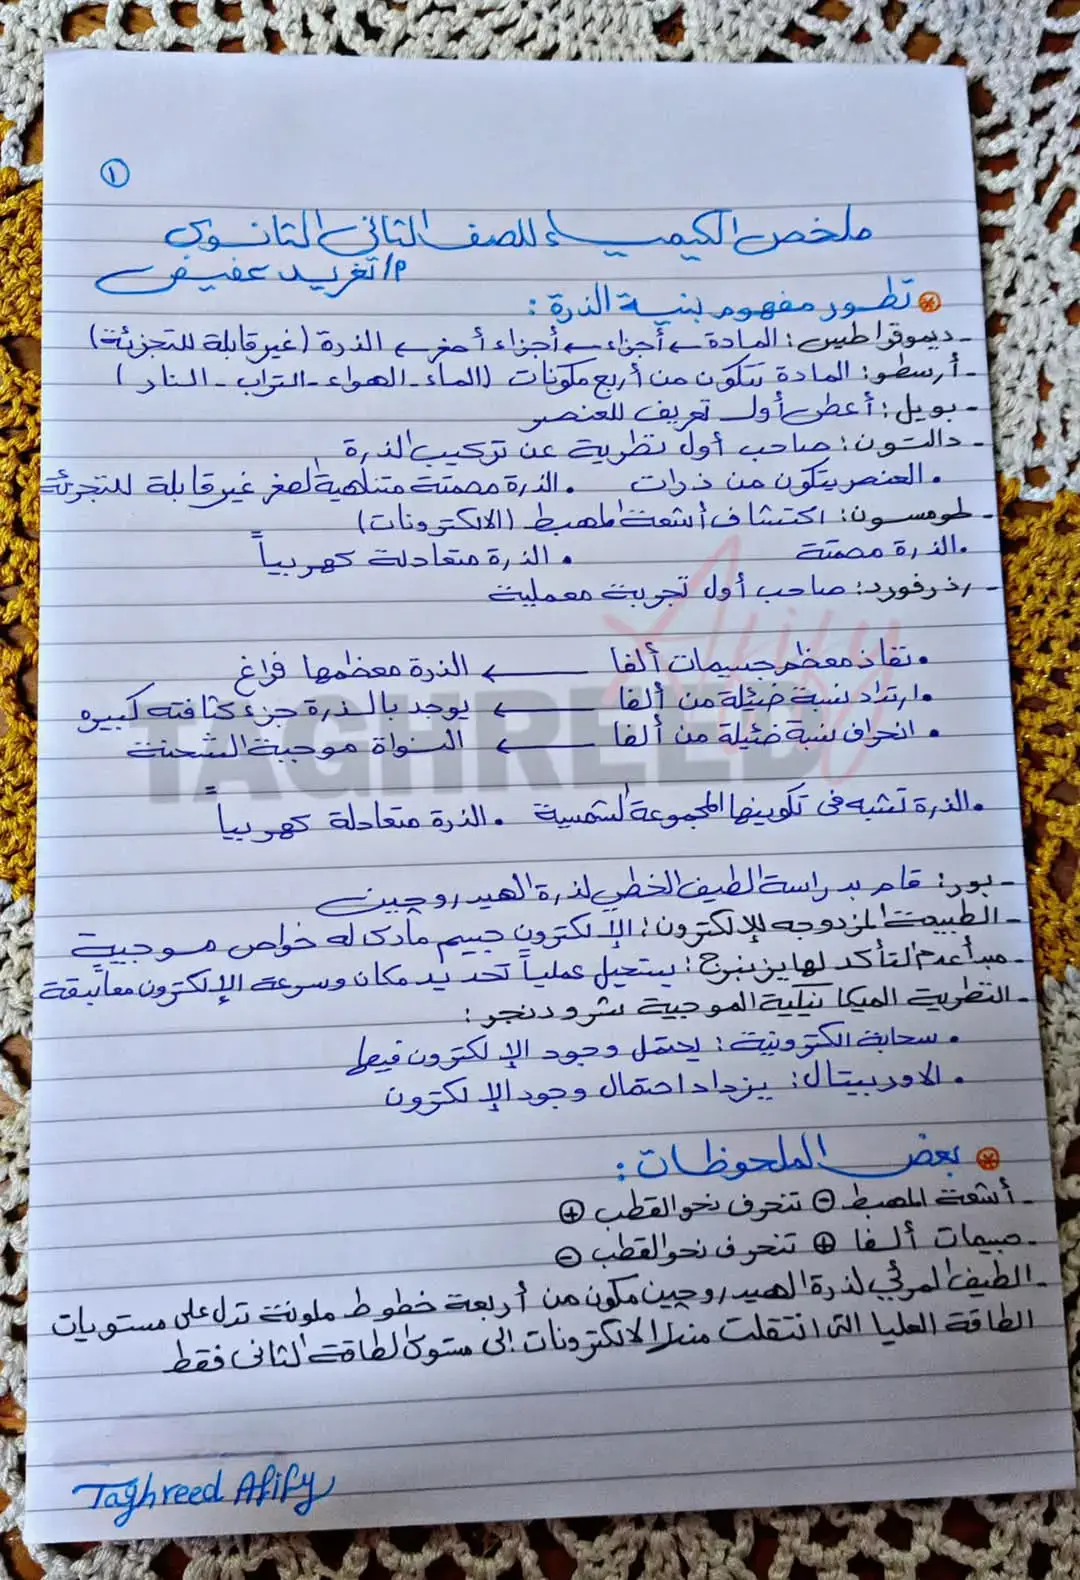 ١
ملخص الكيمياء للصف الثاني الثانوي
م/ تغريد عفيفي
تطور مفهوم بنية الذرة :
- ديموقراطيس : المادة ← أجزاء ← أجزاء أصغر ← الذرة (غير قابلة للتجزئة)
- أرسطو : المادة تتكون من أربع مكونات (الماء - الهواء - التراب - النار)
- بويل : أعطى أول تعريف للعنصر
- دالتون : صاحب أول نظرية عن تركيب الذرة
• العنصر يتكون من ذرات • الذرة مصمتة متناهية الصغر غير قابلة للتجزئة
- طومسون : اكتشاف أشعة المهبط (الالكترونات)
• الذرة مصمتة • الذرة متعادلة كهربياً
- رذرفورد : صاحب أول تجربة معملية
• نفاذ معظم جسيمات ألفا ← الذرة معظمها فراغ
• ارتداد نسبة ضئيلة من ألفا ← يوجد بالذرة جزء كثافته كبيره
• انحراف نسبة ضئيلة من ألفا ← النواة موجبة الشحنة
• الذرة تشبه فى تكوينها المجموعة الشمسية • الذرة متعادلة كهربياً
- بور : قام بدراسة الطيف الخطي لذرة الهيدروجين
- الطبيعة المزدوجه للإلكترون : الإلكترون جسيم مادى له خواص موجبية
- مبدأ عدم التأكد لهايزنبرج : يستحيل عملياً تحديد مكان وسرعة الإلكترون معاً بدقة
- النظرية الميكانيكية الموجية لشرودنجر :
• سحابة الكترونية : يحتمل وجود الإلكترون فيها
• الاوربيتال : يزداد احتمال وجود الإلكترون
بعض الملحوظات :
- أشعة المهبط ⊖ تنحرف نحو القطب ⊕
- جسيمات ألفا ⊕ تنحرف نحو القطب ⊖
- الطيف المرئي لذرة الهيدروجين مكون من أربعة خطوط ملونة تدل على مستويات
الطاقة العليا التى انتقلت منها الالكترونات إلى مستوى الطاقة الثانى فقط
Taghreed Afify
TAGHREED
Afify